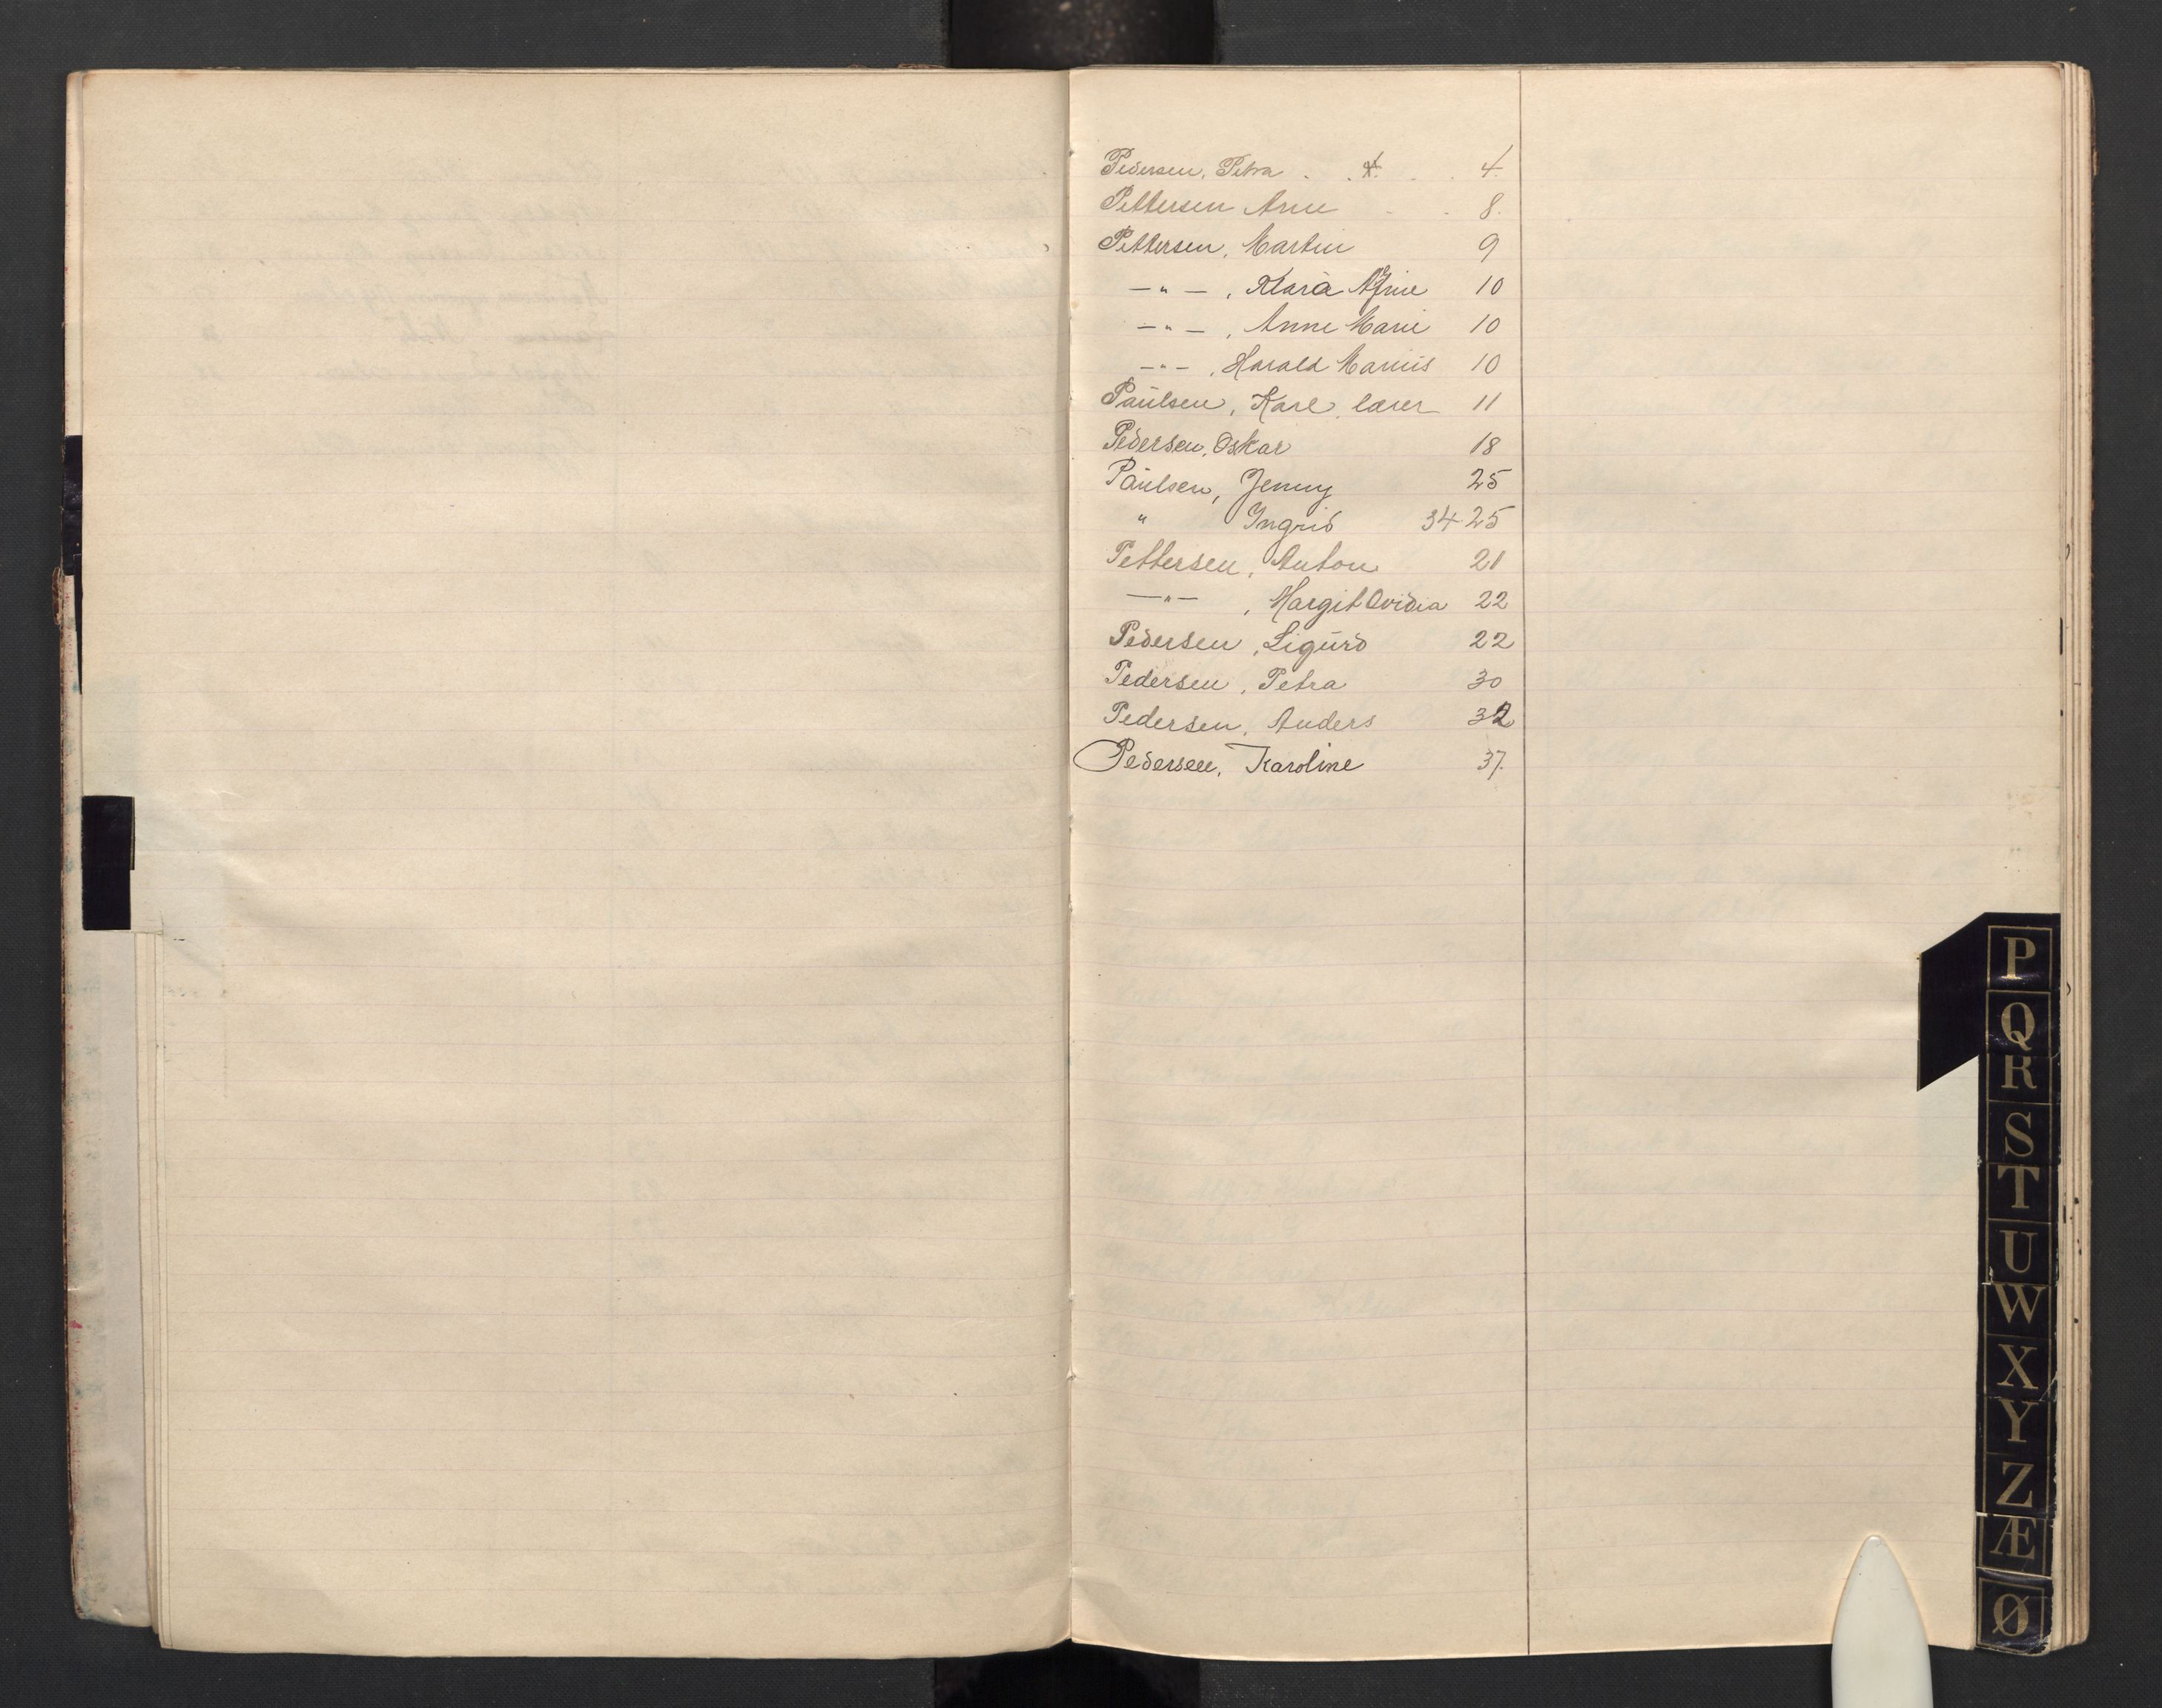 Pedersen, Petra . . 4. . . 4.
Pettersen Arne . . 8.
Pettersen, Martin 9
—"— , Klara 10
—"— , Anne Marie 10
—"— , Harald Marius 10
Paulsen, Karl, lærer 11
Pedersen, Oskar 18
Paulsen, Jenny 25
" Ingrid 34 25
Pettersen, Anton 21
—"— , Margit Ovidia 22
Pedersen, Sigurd 22
Pedersen, Petra 30
Pedersen, Anders 32
Pedersen, Karoline 37.
P
Q
R
S
T
U
W
X
Y
Z
Æ
Ø